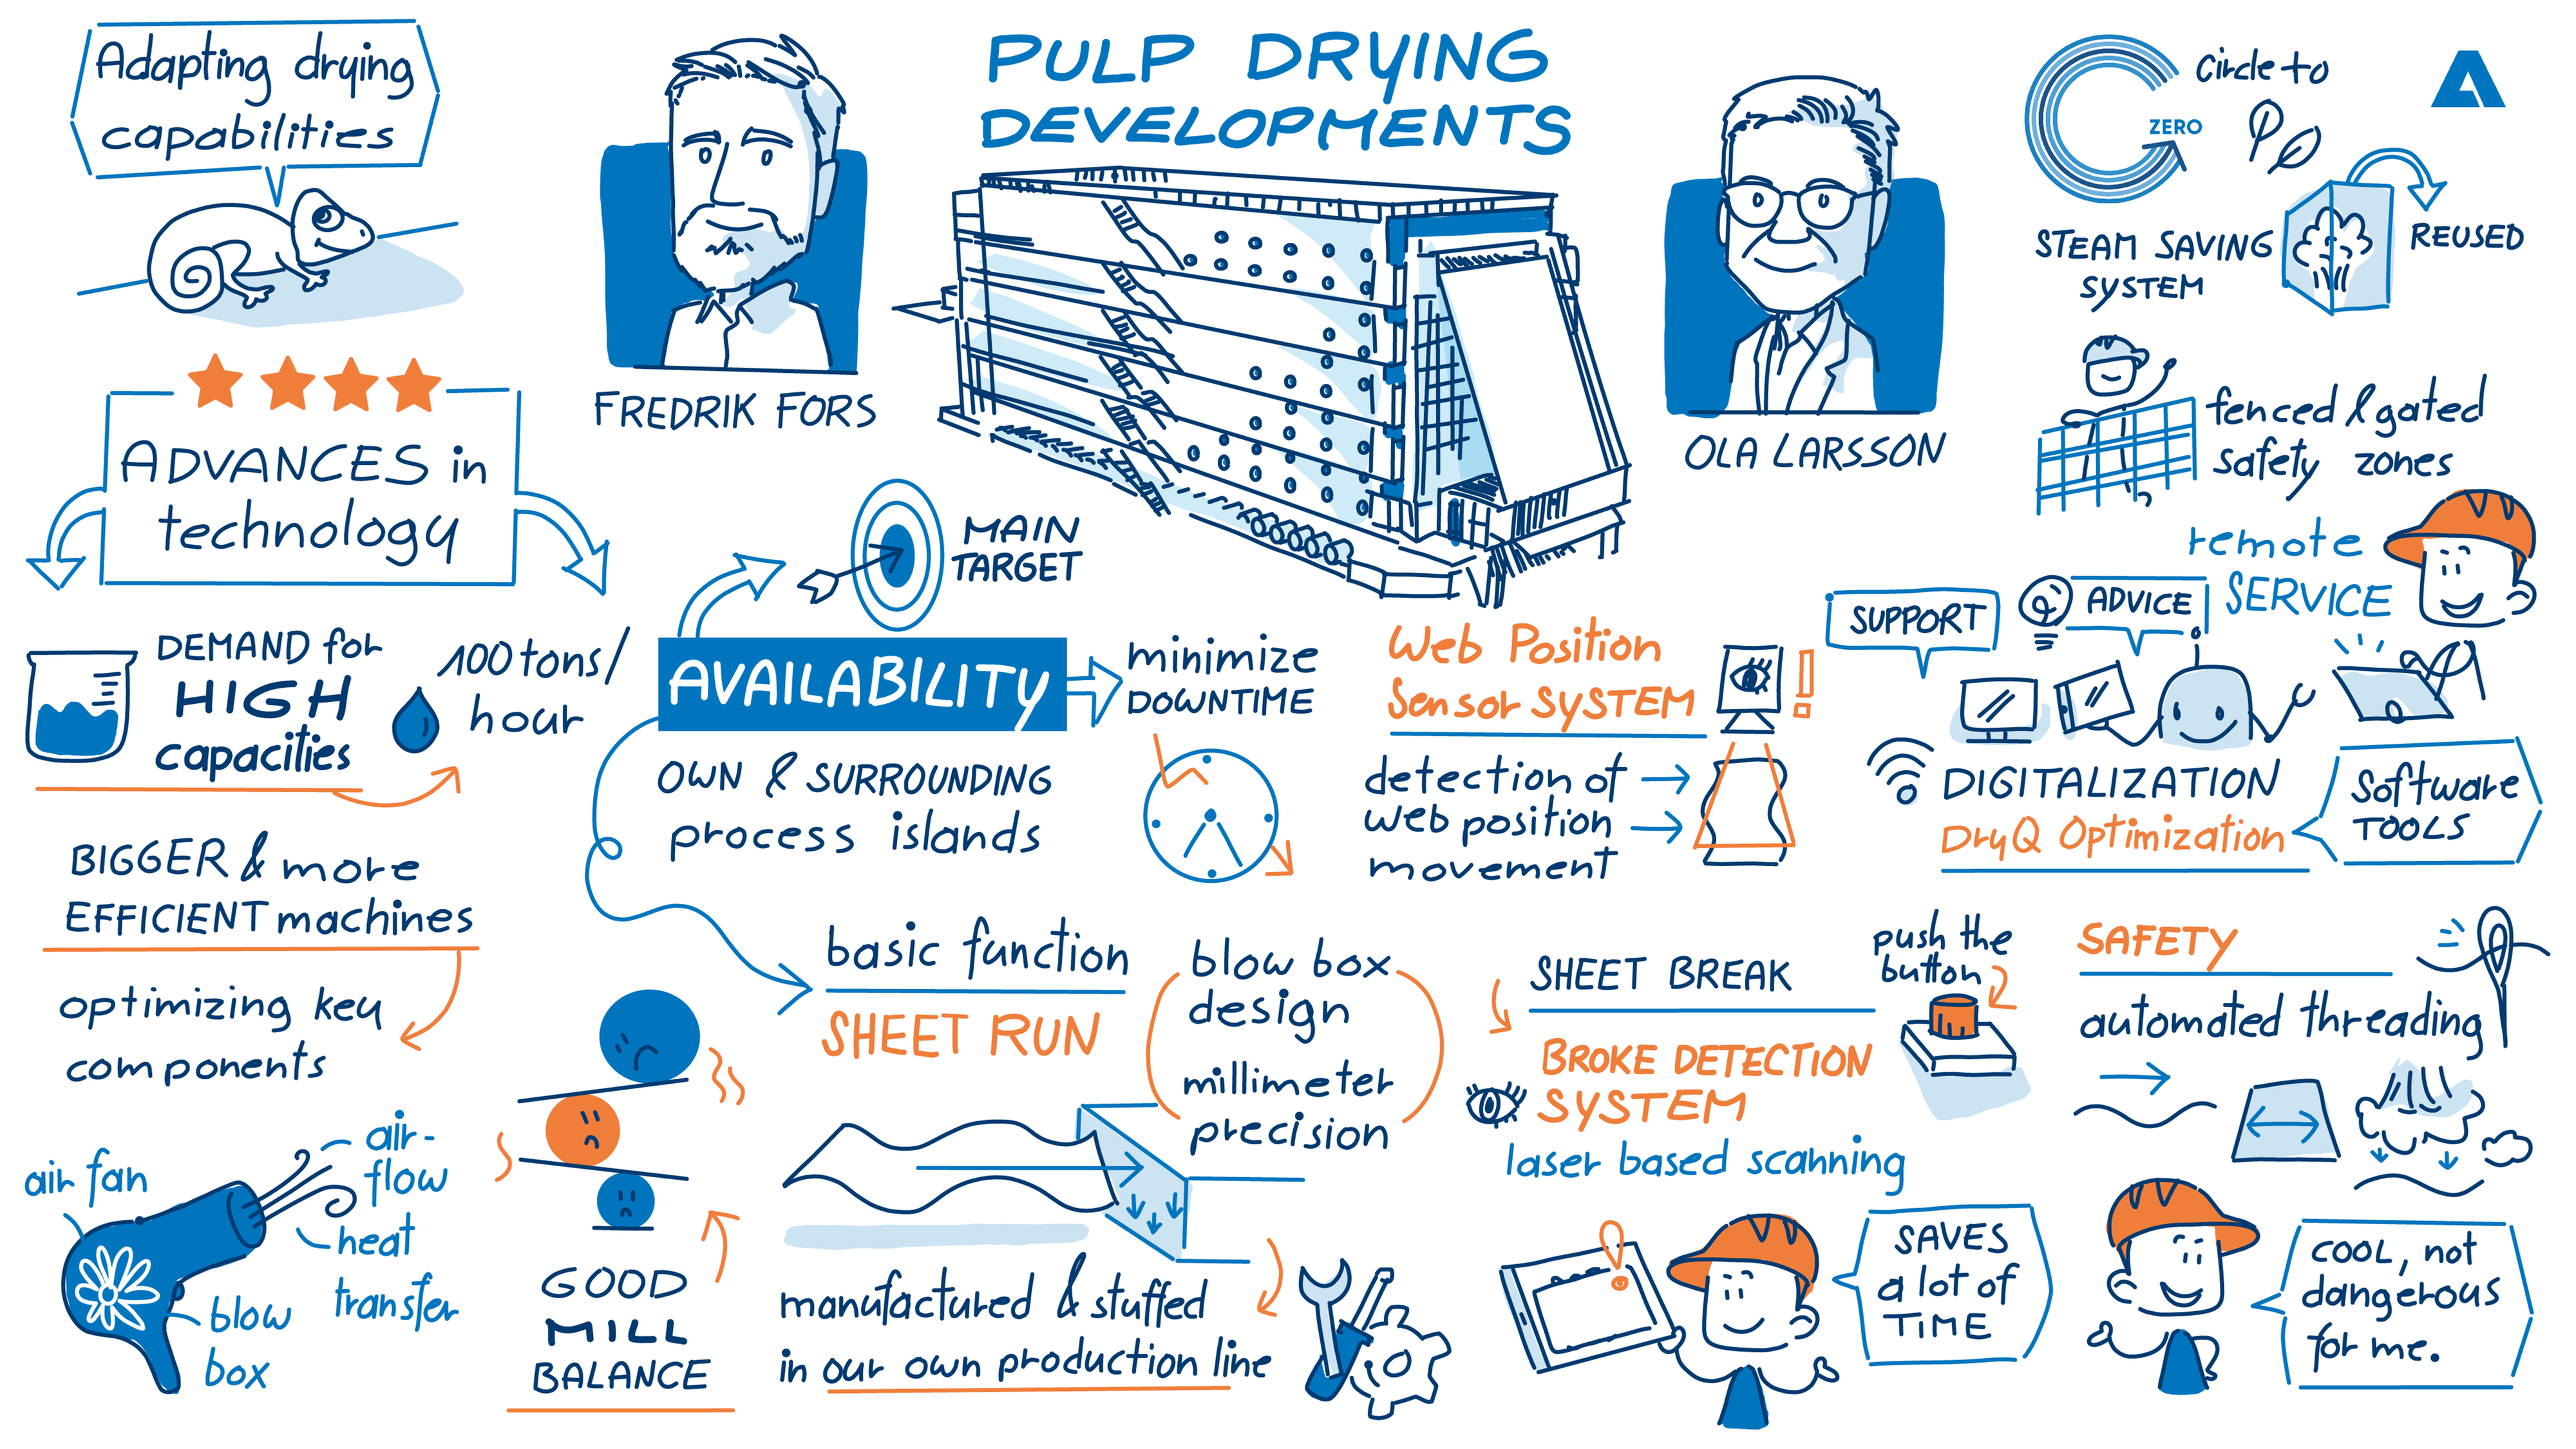 Adapting drying
capabilities
PULP DRYING
DEVELOPMENTS
FREDRIK FORS
OLA LARSSON
Circle to
ZERO
STEAM SAVING
SYSTEM
REUSED
fenced & gated
safety zones
remote
SERVICE
SUPPORT
ADVICE
DIGITALIZATION
DryQ Optimization
Software
TOOLS
ADVANCES in
technology
DEMAND for
HIGH
capacities
100 tons/
hour
BIGGER & more
EFFICIENT machines
optimizing key
components
air fan
air-
flow
heat
transfer
blow
box
MAIN
TARGET
AVAILABILITY
minimize
DOWNTIME
OWN & SURROUNDING
process islands
basic function
SHEET RUN
blow box
design
millimeter
precision
GOOD
MILL
BALANCE
manufactured & stuffed
in our own production line
Web Position
Sensor SYSTEM
detection of
web position
movement
SHEET BREAK
push the
button
BROKE DETECTION
SYSTEM
laser based scanning
SAVES
a lot of
TIME
SAFETY
automated threading
COOL, not
dangerous
for me.